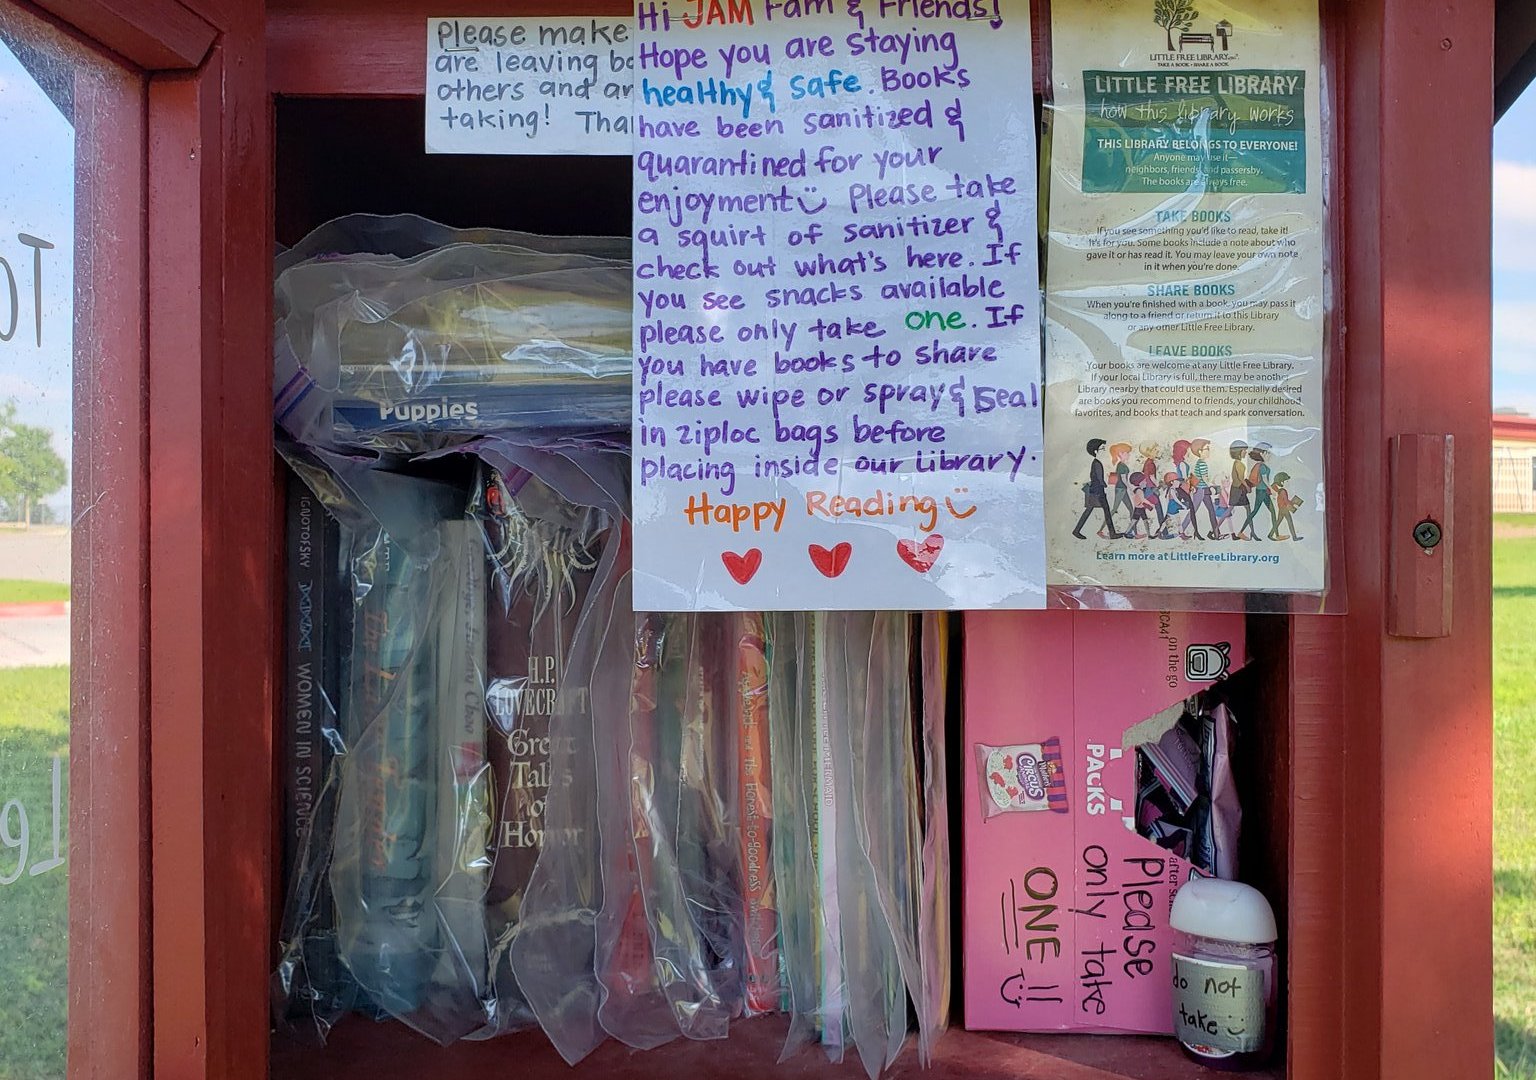 Please make
are leaving bo
others and ar
taking! Tha
Hi JAM Fam & Friends!
Hope you are staying
healthy & safe. Books
have been sanitized &
quarantined for your
enjoyment Please take
a squirt of sanitizer &
check out what's here. If
you see snacks available
please only take one. If
you have books to share
please wipe or spray & seal
in ziploc bags before
placing inside our Library.
Happy Reading
LITTLE FREE LIBRARY.ORG
TAKE A BOOK • SHARE A BOOK
LITTLE FREE LIBRARY
how this library works
THIS LIBRARY BELONGS TO EVERYONE!
Anyone may use it—
neighbors, friends and passersby.
The books are always free.
TAKE BOOKS
If you see something you'd like to read, take it!
It's for you. Some books include a note about who
gave it or has read it. You may leave your own note
in it when you're done.
SHARE BOOKS
When you're finished with a book, you may pass it
along to a friend or return it to this Library
or any other Little Free Library.
LEAVE BOOKS
Your books are welcome at any Little Free Library.
If your local Library is full, there may be another
Library nearby that could use them. Especially desired
are books you recommend to friends, your childhood
favorites, and books that teach and spark conversation.
Learn more at LittleFreeLibrary.org
Puppies
IGNOTOFSKY WOMEN IN SCIENCE
H.P.
LOVECRAFT
Great
Tales
of
Horror
on the go
PACKS
Circus
Please
only take
ONE!!
do not
take